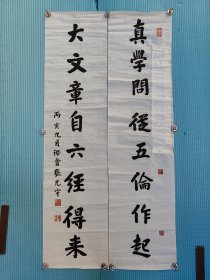 真學問從五倫作起
大文章自六經得来
丙寅九月